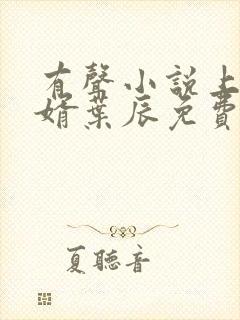 有聲小說上
婿葉辰免費
夏聽音